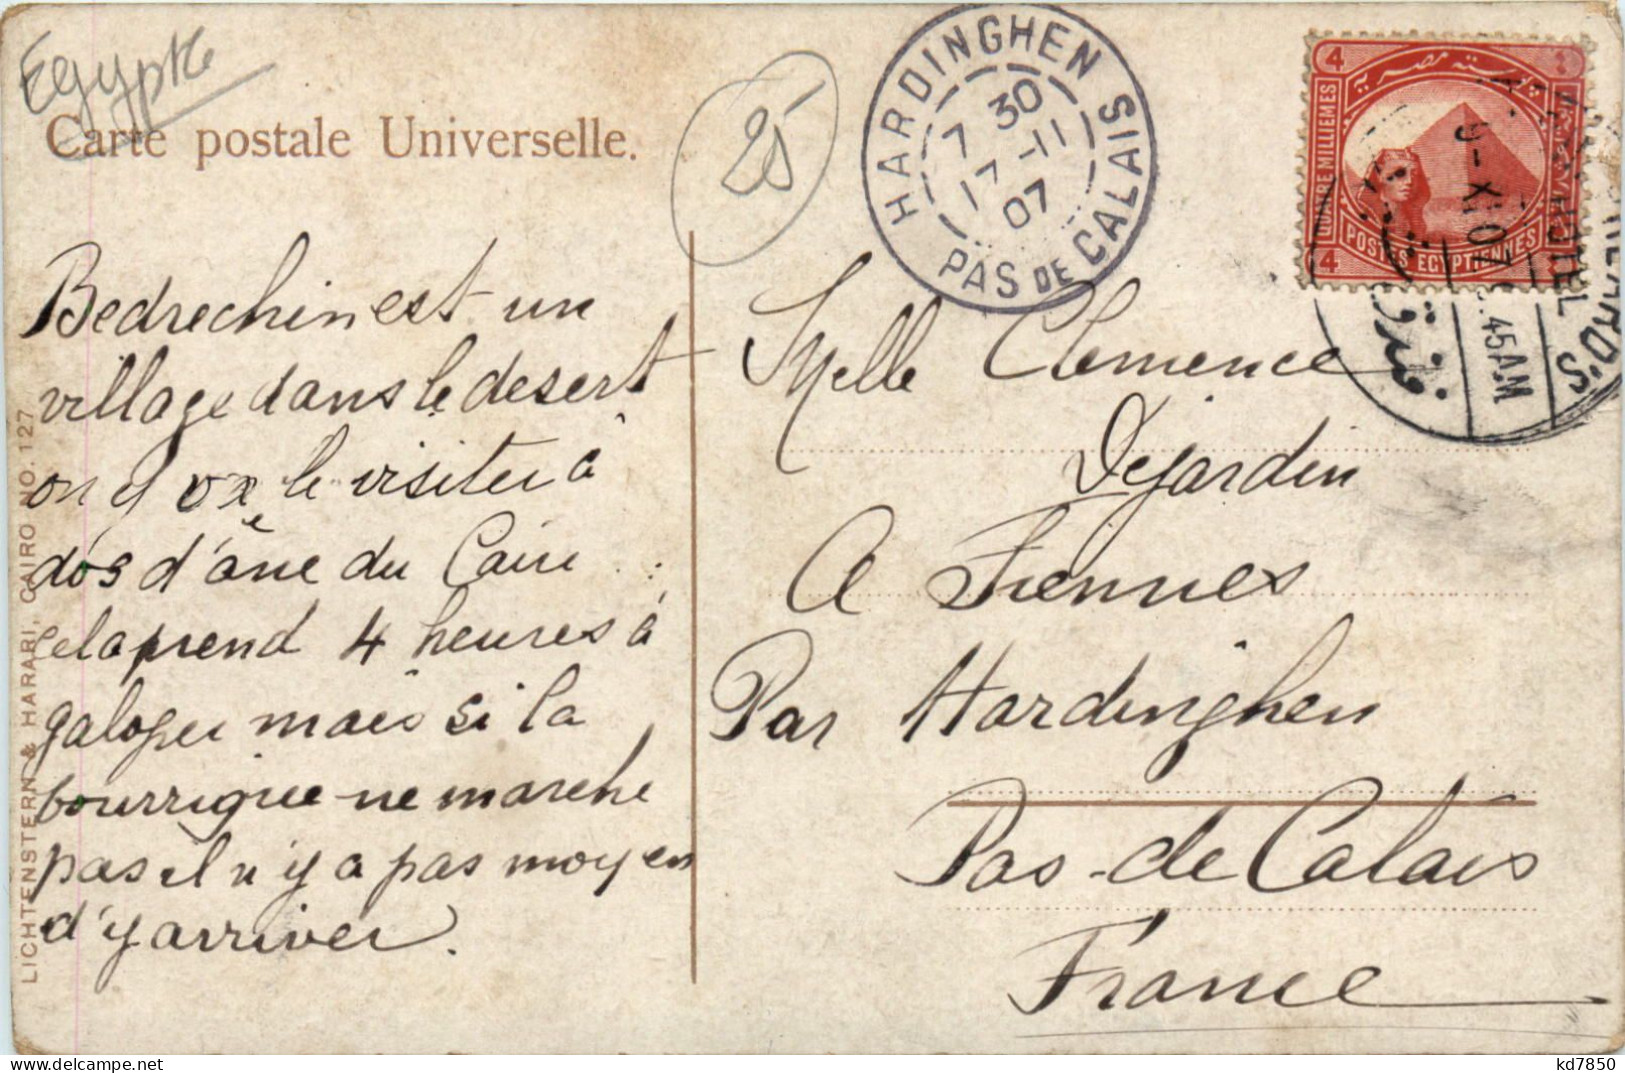 Egypte
Carte postale Universelle.
25
HARDINGHEN PAS DE CALAIS
7 30
17 -11
07
4
QUATRE MILLIEMES
POSTES EGYPTIENNES
4
9-XI 07
45 AM
Bedrechin est un
village dans le desert
on y va le visiter à
dos d'âne du Caire
cela prend 4 heures à
galoper mais si la
bourrique ne marche
pas il n'y a pas moyen
d'y arriver.
Melle Clemence
Dejardin
A Fiennes
Par Hardinghen
Pas-de Calais
France
LICHTENSTERN & HARARI, CAIRO NO. 127
kd7850